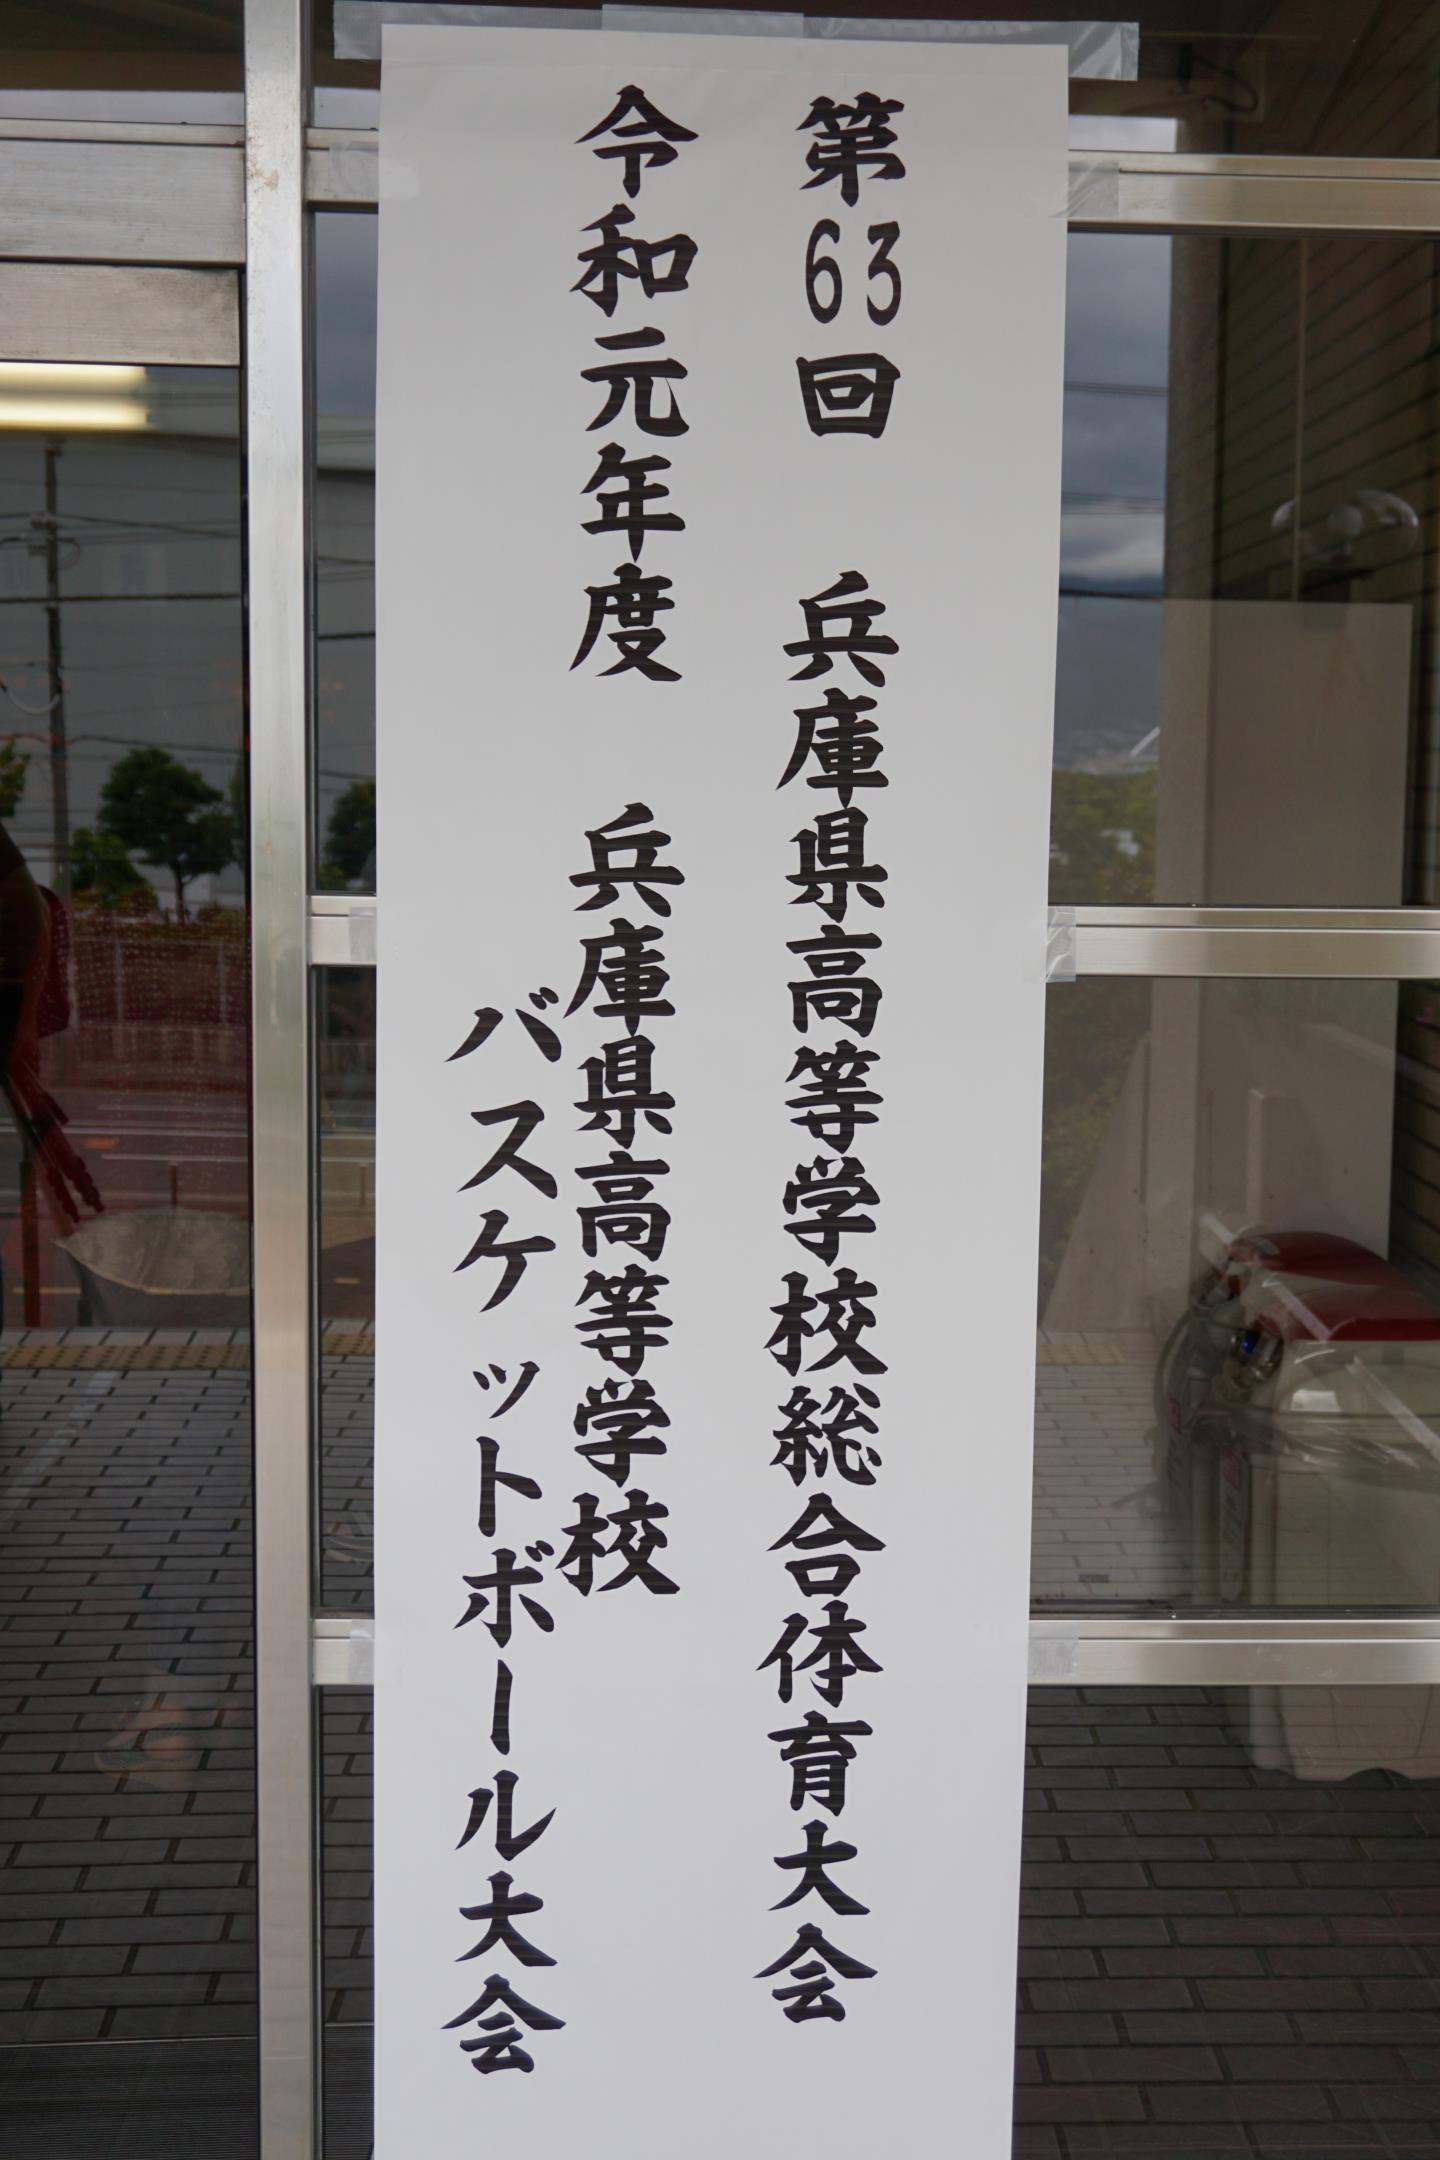 第63回 兵庫県高等学校総合体育大会
令和元年度 兵庫県高等学校
バスケットボール大会